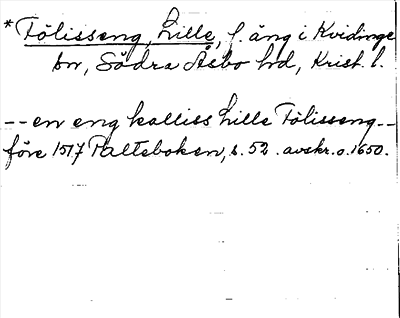 *Tölisseng, Lille, f. äng i Kvidinge
sn, Södra Åsbo hd, Krist. l.
-- en eng kalliss Lille Tölisseng --
före 1517 Palteboken, s. 52. avskr. o. 1650.